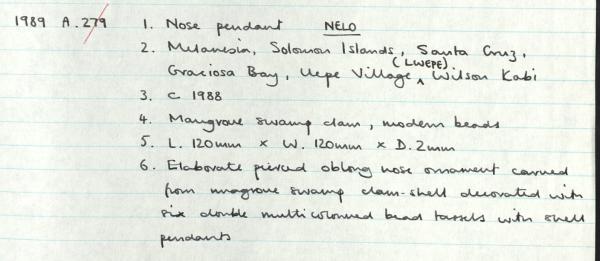 1989 A.279 1. Nose pendant NELO
2. Melanesia, Solomon Islands, Santa Cruz,
(LWEPE)
Graciosa Bay, Uepe Village ^ Wilson Kabi
3. C 1988
4. Mangrove swamp clam, modern beads
5. L. 120mm x W. 120mm x D. 2mm
6. Elaborate pierced oblong nose ornament carved
from magrove swamp clam-shell decorated with
six double multicoloured bead tassels with shell
pendants